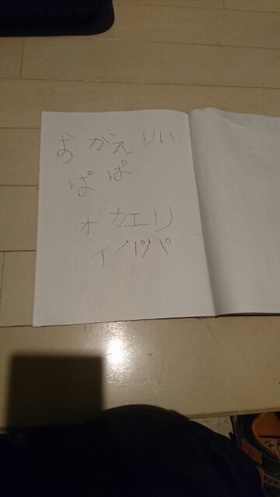 おかえりい
ぱぱ
オカエリ
イノパパ